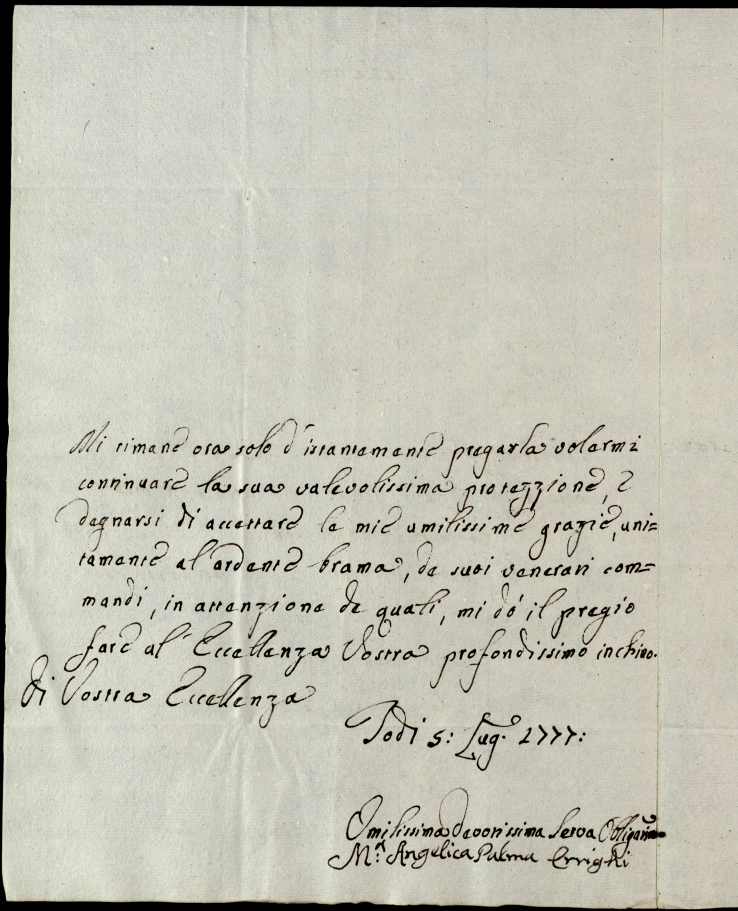 Mi rimane ora solo d'istantemente pregarla volermi
continuare la sua valevolissima protezzione, e
degnarsi di accettare le mie umilissime grazie, uni=
tamente al ardente brama, de suoi venerati com=
mandi, in attenzione de quali, mi dò il pregio
fare al' Eccellenza Vostra profondissimo inchino.
di Vostra Eccellenza
Todi 5: Lug.º 1777:
Umilissima Devotissima Serva
M.ª Angelica Palma